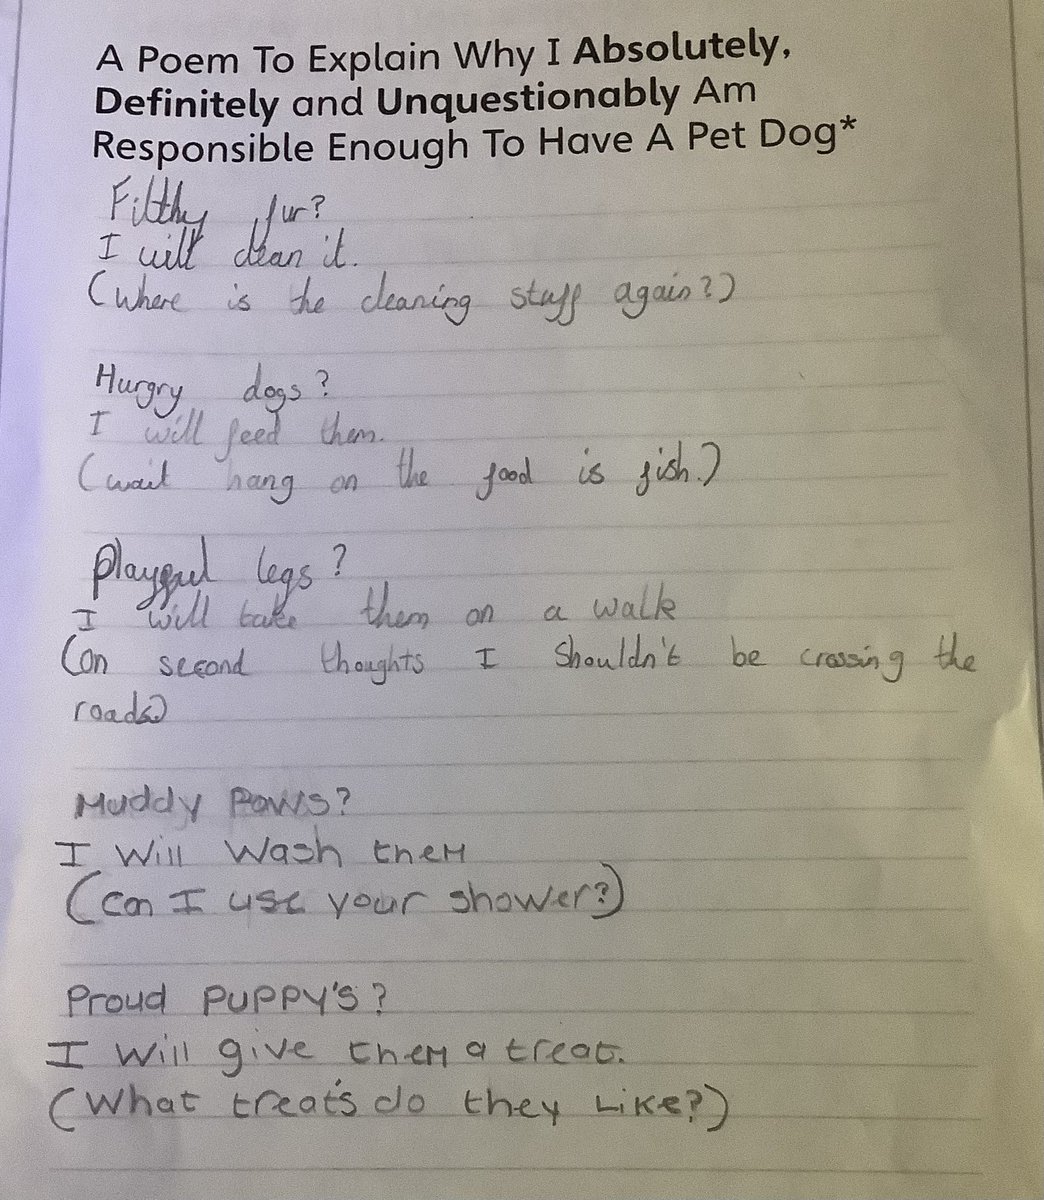 A Poem To Explain Why I Absolutely,
Definitely and Unquestionably Am
Responsible Enough To Have A Pet Dog*
Filthy fur?
I will clean it.
(Where is the cleaning staff again?)
Hungry dogs?
I will feed them.
(wait hang on the food is fish.)
Playful legs?
I will take them on a walk
(on second thoughts I shouldn't be crossing the
roads)
Muddy Paws?
I Will Wash them
(Can I use your shower?)
Proud PUPPY's?
I Will give them a treat.
(What treat's do they Like?)